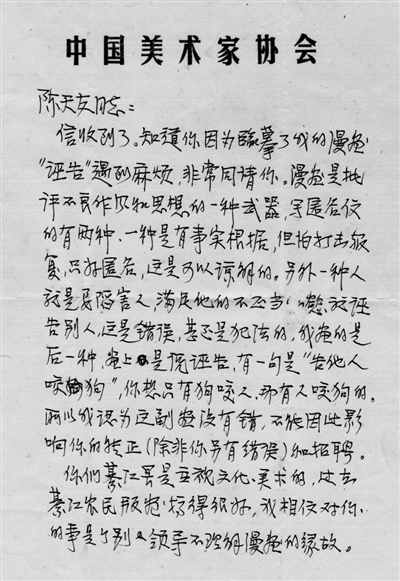 中国美术家协会
陈天友同志：
信收到了。知道你因为临摹了我的漫画
“诬告”遇到麻烦，非常同情你。漫画是批
评不良作风和思想的一种武器，写匿名信
的有两种，一种是有事实根据，但怕打击报
复，只好匿名，这是可以谅解的。另外一种人
就是要陷害人，满足他的不正当 放诬
告别人，这是错误，甚至是犯法的，我画的是
后一种，画上是说诬告，有一句是“告他人
咬狗”，你想只有狗咬人，那有人咬狗的。
所以我认为这副画没有错，不能因此影
响你的转正（除非你另有错误）和招聘。
你们綦江县是重视文化、美术的，过去
綦江农民版画搞得很好，我相信对你
的事是个别领导不理解漫画的缘故。